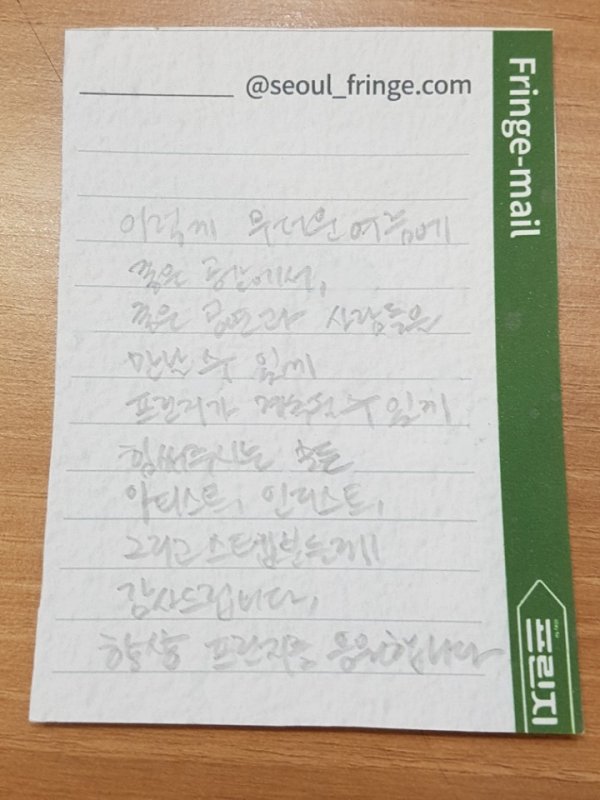 @seoul_fringe.com
Fringe-mail
이렇게 무더운 여름에
좋은 공간에서,
좋은 공연과 사람들을
만날 수 있게
프린지가 계속될 수 있게
힘써주시는 모든
아티스트, 인디스트,
그리고 스텝분들께
감사드립니다.
항상 프린지를 응원합니다
프린지